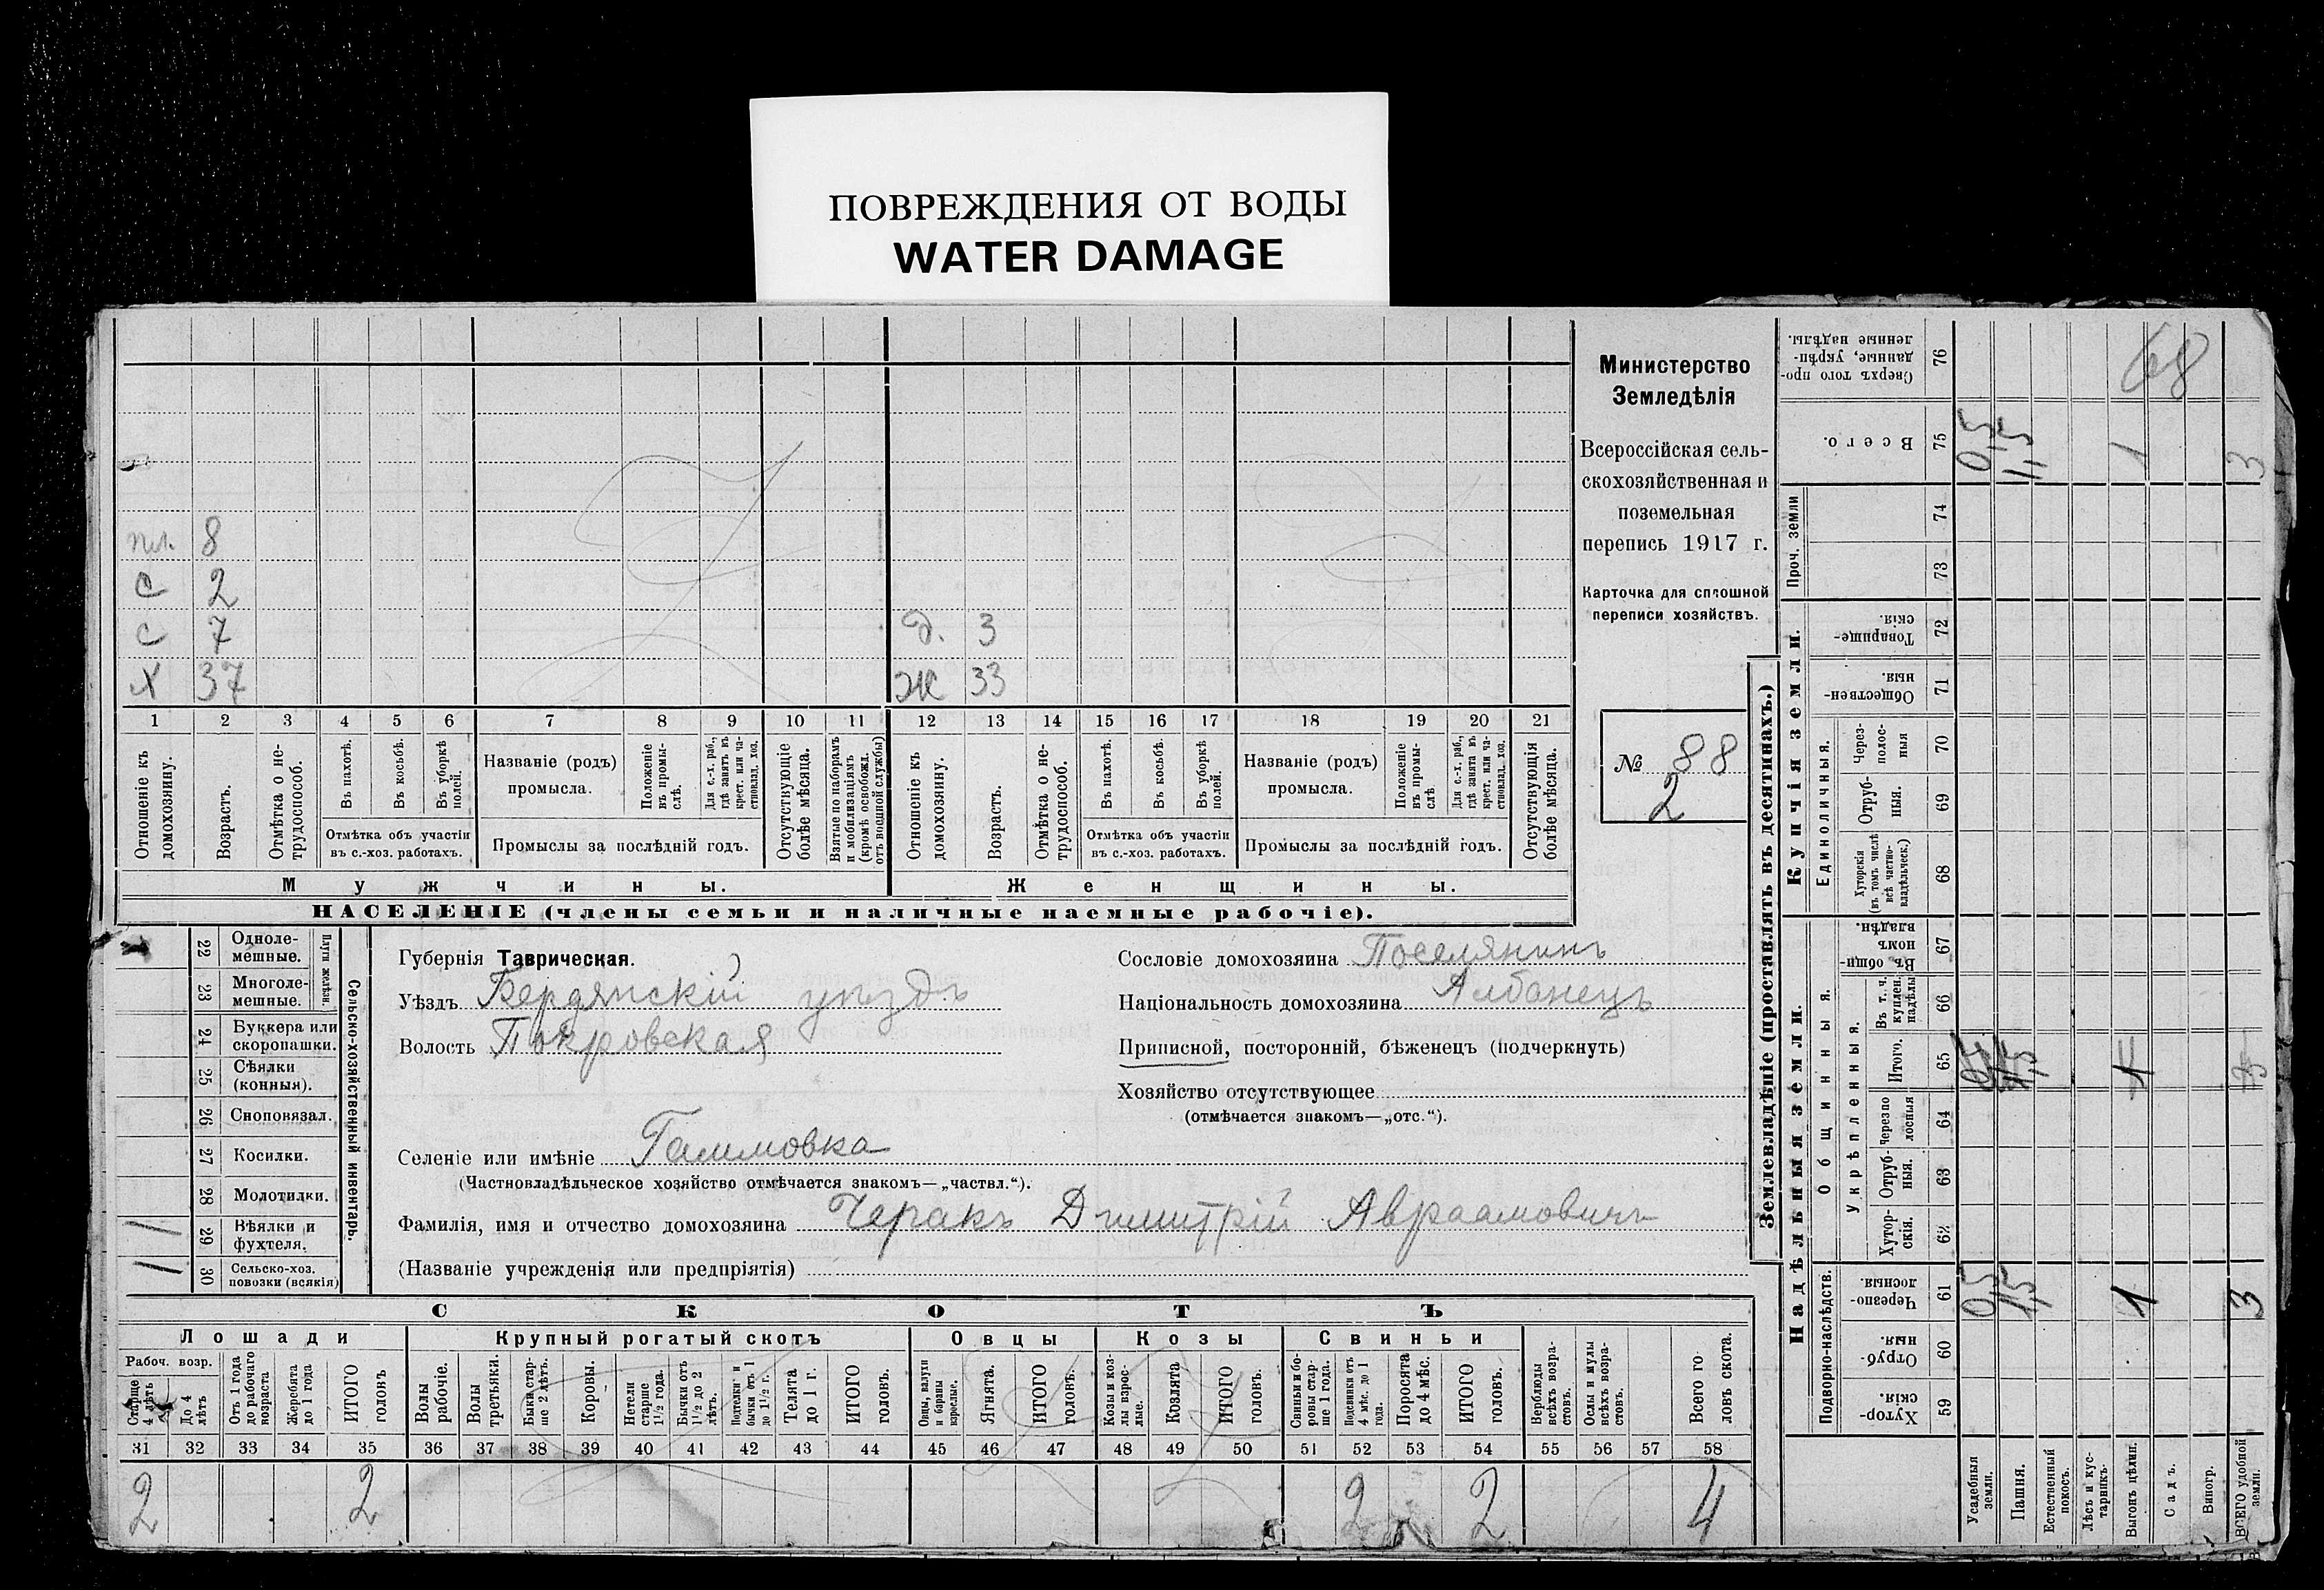 ПОВРЕЖДЕНИЯ ОТ ВОДЫ
WATER DAMAGE
пл. 8
с 2
с 7
х 37
д. 3
ж 33
1 2 3 4 5 6 7 8 9 10 11 12 13 14 15 16 17 18 19 20 21
Отношеніе къ домохозяину.
Возрастъ.
Отмѣтка о не-
трудоспособ.
Въ пахотѣ.
Въ косьбѣ.
Въ уборкѣ полей.
Отмѣтка объ участіи
въ с.-хоз. работахъ.
Названіе (родъ)
промысла.
Положеніе въ промы-
слѣ.
Для с.-х. раб., гдѣ занятъ въ крест. или ча-
стновлад. хоз.
Промыслы за послѣдній годъ.
Отсутствующіе болѣе мѣсяца.
Взятые по наборамъ и мобилизаціямъ (кромѣ освобожд. отъ военной службы)
Отношеніе къ домохозяину.
Возрастъ.
Отмѣтка о не-
трудоспособ.
Въ пахотѣ.
Въ косьбѣ.
Въ уборкѣ полей.
Отмѣтка объ участіи
въ с.-хоз. работахъ.
Названіе (родъ)
промысла.
Положеніе въ промы-
слѣ
Для с.-х. раб., гдѣ занята въ крест. или ча-
стновлад. хоз.
Промыслы за послѣдній годъ.
Отсутствующія болѣе мѣсяца.
Мужчины.
Женщины.
НАСЕЛЕНІЕ (члены семьи и наличные наемные рабочіе).
Министерство
Земледѣлія
Всероссійская сель-
скохозяйственная и
поземельная
перепись 1917 г.
Карточка для сплошной
переписи хозяйствъ.
№ 88
2
22 Одноле-
мешные.
23 Многоле-
мешные.
Плуги желѣзн.
24 Буккера или
скоропашки.
25 Сѣялки
(конныя).
26 Сноповязал.
27 Косилки.
28 Молотилки.
29 Вѣялки и
фухтеля.
30 Сельско-хоз.
повозки (всякія)
Сельско-хозяйственный инвентарь.
Губернія Таврическая.
Уѣздъ Бердянскій уѣздъ
Волость Покровская
Селеніе или имѣніе Гаммовка
(Частновладѣльческое хозяйство отмѣчается знакомъ—„частвл.“).
Фамилія, имя и отчество домохозяина Черакъ Дмитрій Авраамовичъ
(Названіе учрежденія или предпріятія)
Сословіе домохозяина Поселянинъ
Національность домохозяина Албанецъ
Приписной, посторонній, бѣженецъ (подчеркнуть)
Хозяйство отсутствующее
(отмѣчается знакомъ—„отс.“).
СКОТЪ
Лошади
Рабоч. возр.
Старше 4 лѣтъ
До 4 лѣтъ
Отъ 1 года до рабочаго возраста
Жеребята до 1 года
ИТОГО головъ
Крупный рогатый скотъ
Волы рабочіе.
Волы третьяки.
Быки стар-
ше 2 лѣтъ.
Коровы.
Нетели старше 1½ года.
Бычки отъ 1½ до 2 лѣтъ.
Подтелки и бычки отъ 1 до 1½ г.
Телята до 1 г.
ИТОГО головъ.
Овцы
Овцы, валухи и бараны взрослые.
Ягнята.
ИТОГО головъ.
Козы
Козы и коз-
лы взрос-
лые.
Козлята
ИТОГО головъ.
Свиньи
Свиньи и бо-
ровы стар-
ше 1 года.
Подсвинки отъ 4 мѣс. до 1 года.
Поросята до 4 мѣс.
ИТОГО головъ.
Верблюды всѣхъ возра-
стовъ.
Ослы и мулы всѣхъ возра-
стовъ.
Всего го
ловъ скота.
31 32 33 34 35 36 37 38 39 40 41 42 43 44 45 46 47 48 49 50 51 52 53 54 55 56 57 58
2 2 2 2 4
Землевладѣніе (проставлять въ десятинахъ.)
68
Сверхъ того про-
данные, укрѣп-
ленные надѣлы. 76
Всего. 75 0,5 1,5 1 3
Проч. земли
74
73
Купчія земли.
Товарище-
скія. 72
Обществен-
ныя. 71
Единоличныя.
Через-
полос-
ныя 70
Отруб-
ныя. 69
Хуторскія
(въ томъ числѣ
всѣ частно-
владѣльческ.) 68
Надѣльныя земли.
Общинныя.
Въ общин-
номъ
владѣн. 67
Укрѣпленныя.
Въ т. ч.
куплен.
надѣлы 66
Итого. 65 0,5 1,5 1 3
Черезпо
лосныя 64
Отруб-
ныя. 63
Хутор-
скія. 62
Подворно-наслѣдств.
Черезпо-
лосныя. 61 0,5 1,5 1 3
Отруб-
ныя. 60
Хутор-
скія. 59
Усадебныя земли.
Пашня.
Естественный покосъ.
Лѣсъ и кус-
тарникъ.
Выгонъ цѣлин.
Садъ.
Виногр.
ВСЕГО удобной земли.